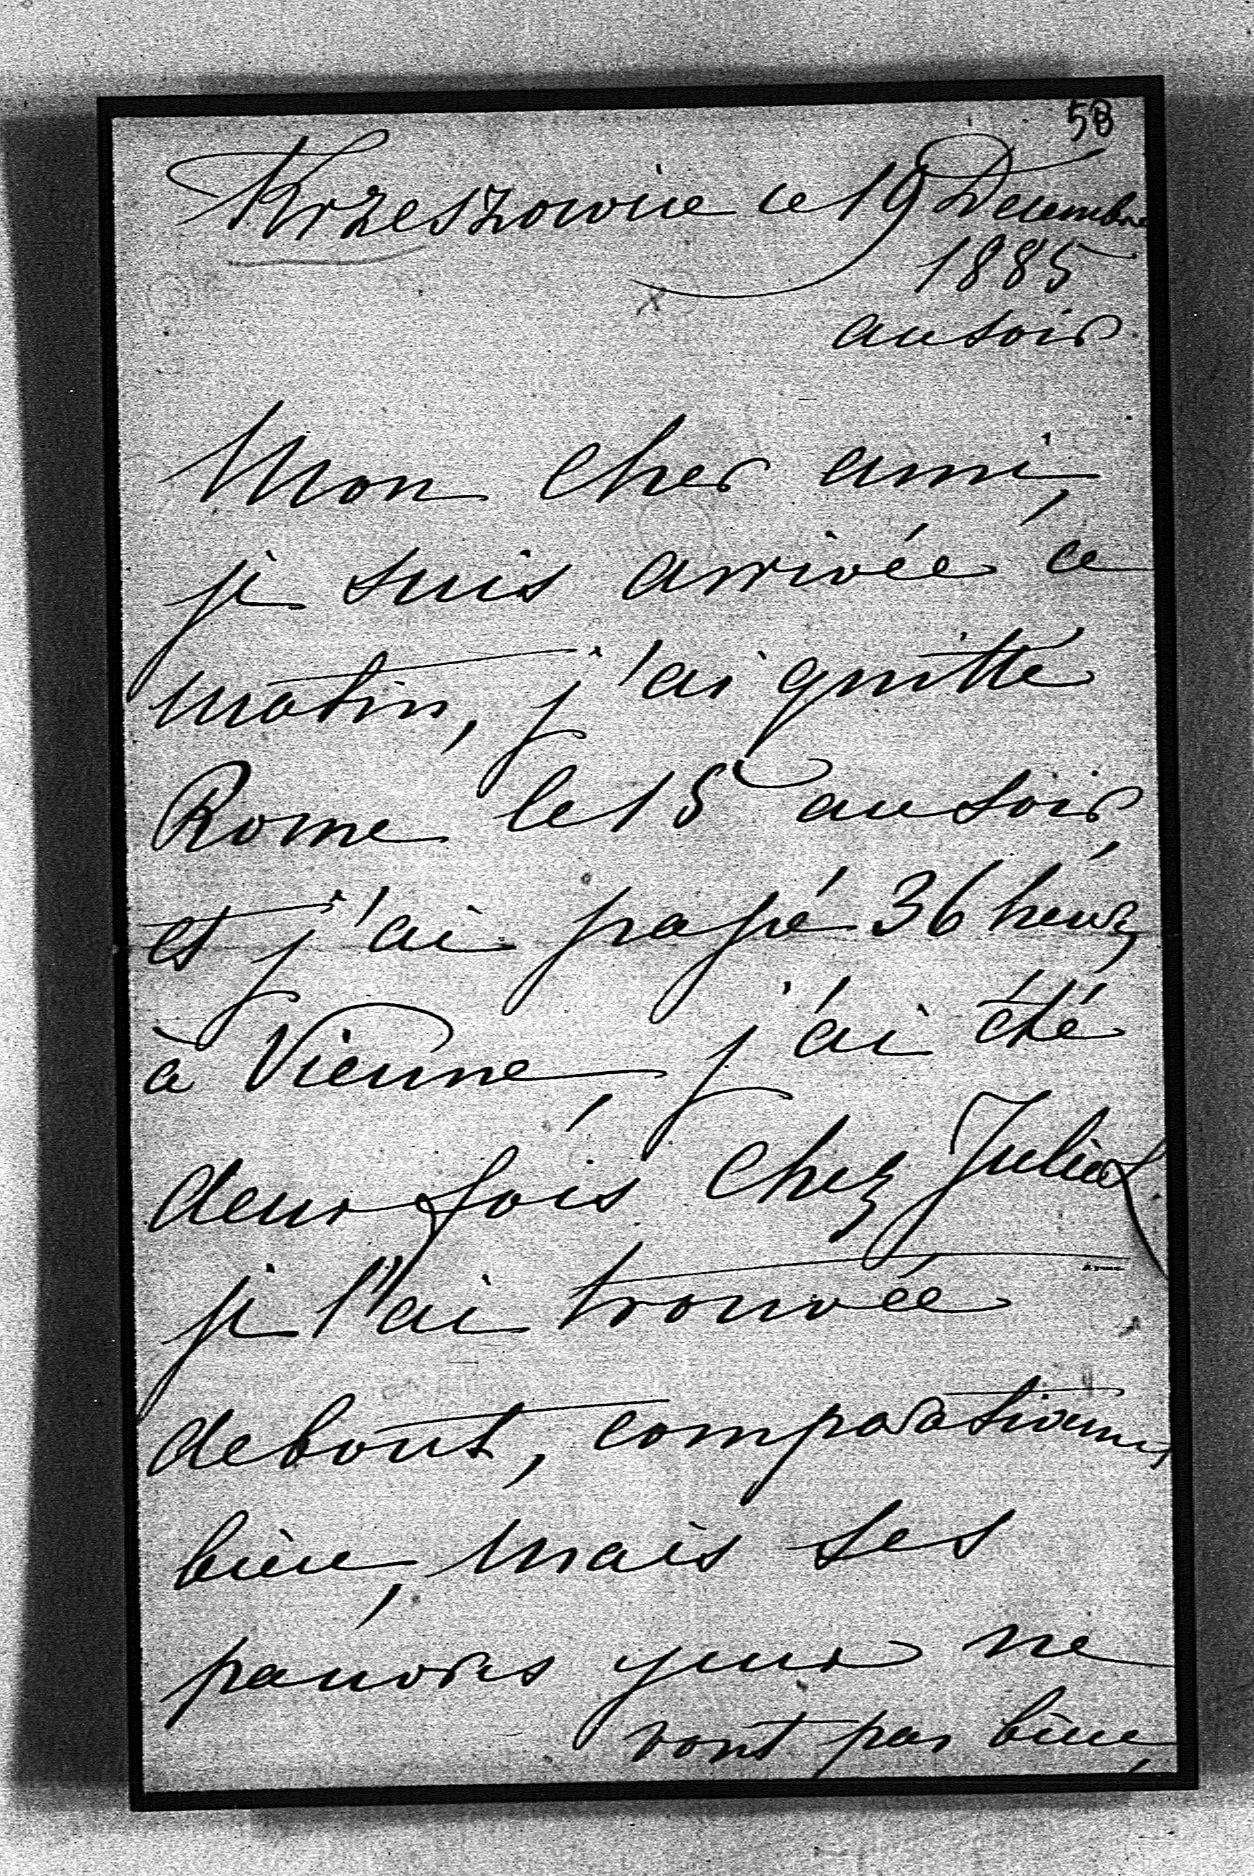 58
Krzeszowice ce 19 Decembre
1885
au soir.
Mon cher ami,
je suis arrivée ce
matin, j'ai quitté
Rome le 15 au soir,
et j'ai passé 36 heures
à Vienne, j'ai été
deux fois chez Julia
je l'ai trouvée
debout, comparativement
bien, mais ses
pauvres yeux ne
vont pas bien,